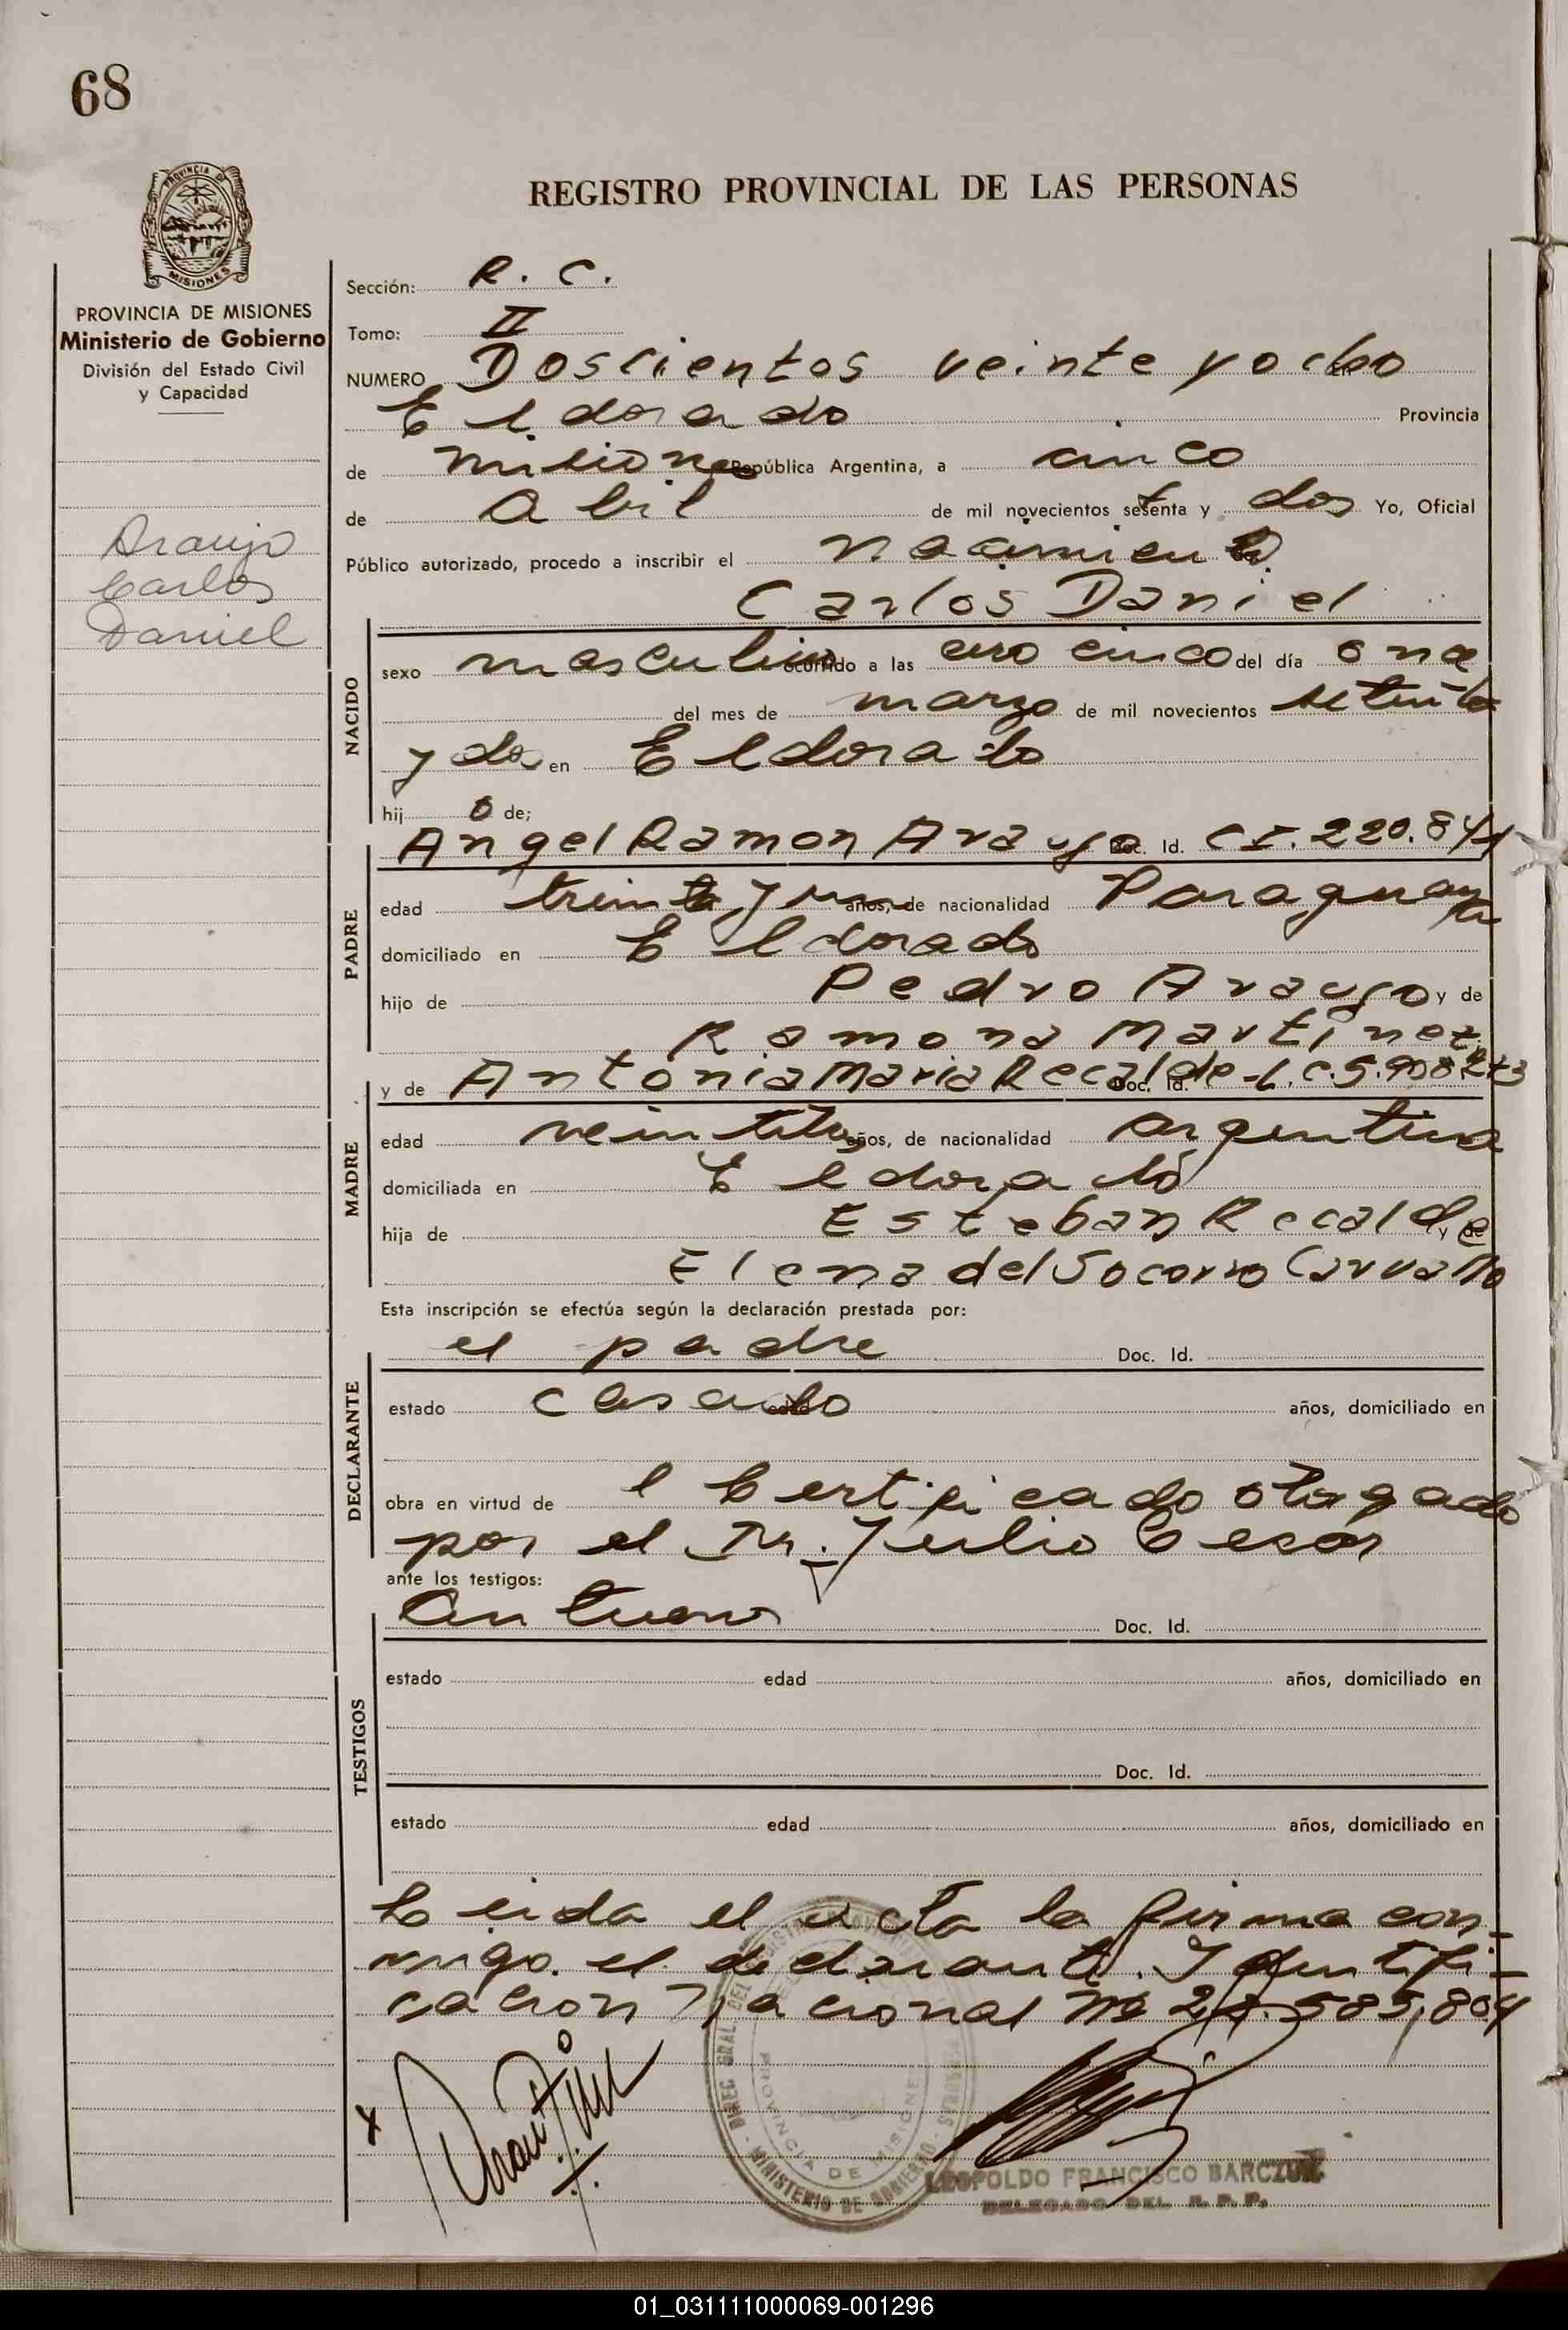 68
PROVINCIA DE MISIONES
REGISTRO PROVINCIAL DE LAS PERSONAS
PROVINCIA DE MISIONES
Ministerio de Gobierno
División del Estado Civil
y Capacidad
Araujo
Carlos
Daniel
Sección: R. C.
Tomo: II
NUMERO Doscientos veinte y ocho
Eldorado Provincia
de Misiones República Argentina, a cinco
de Abril de mil novecientos setenta y dos Yo, Oficial
Público autorizado, procedo a inscribir el nacimiento
Carlos Daniel
NACIDO
sexo masculino ocurrido a las cero cinco del día once
del mes de marzo de mil novecientos setenta
y dos en Eldorado
hij o de;
Angel Ramon Araujo Doc. Id. C I. 220.841
PADRE
edad treinta y un años, de nacionalidad Paraguaya
domiciliado en Eldorado
hijo de Pedro Araujo y de
Ramona Martinez
y de Antonia Maria Recalde Doc. Id. L.C. 5.908.273
MADRE
edad años, de nacionalidad argentina
domiciliada en Eldorado
hija de Esteban Recalde y de
Elena del Socorro Carvallo
Esta inscripción se efectúa según la declaración prestada por:
el padre Doc. Id.
DECLARANTE
estado casado edad años, domiciliado en
obra en virtud de l Certificado otorgado
por el Dr. Julio Cesar
ante los testigos:
Doc. Id.
TESTIGOS
estado edad años, domiciliado en
Doc. Id.
estado edad años, domiciliado en
Leida el acta la firma con
migo el declarante. Identifi
cacion Nacional Nº 585,804
LEOPOLDO FRANCISCO BARCZUK
DELEGADO DEL R. P. P.
MINISTERIO DE GOBIERNO
PROVINCIA DE MISIONES
01_031111000069-001296